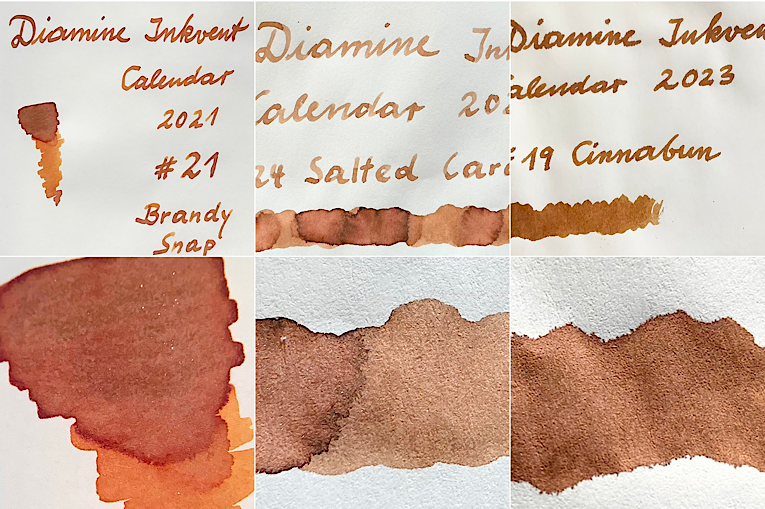 Diamine Inkvent
Calendar
2021
#21
Brandy
Snap
Diamine In
Calendar 202
24 Salted Car
Diamine Inkven
alendar 2023
19 Cinnabun